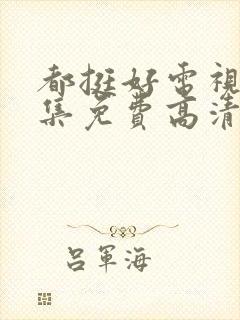 都挺好电視
集免費高清
呂軍海